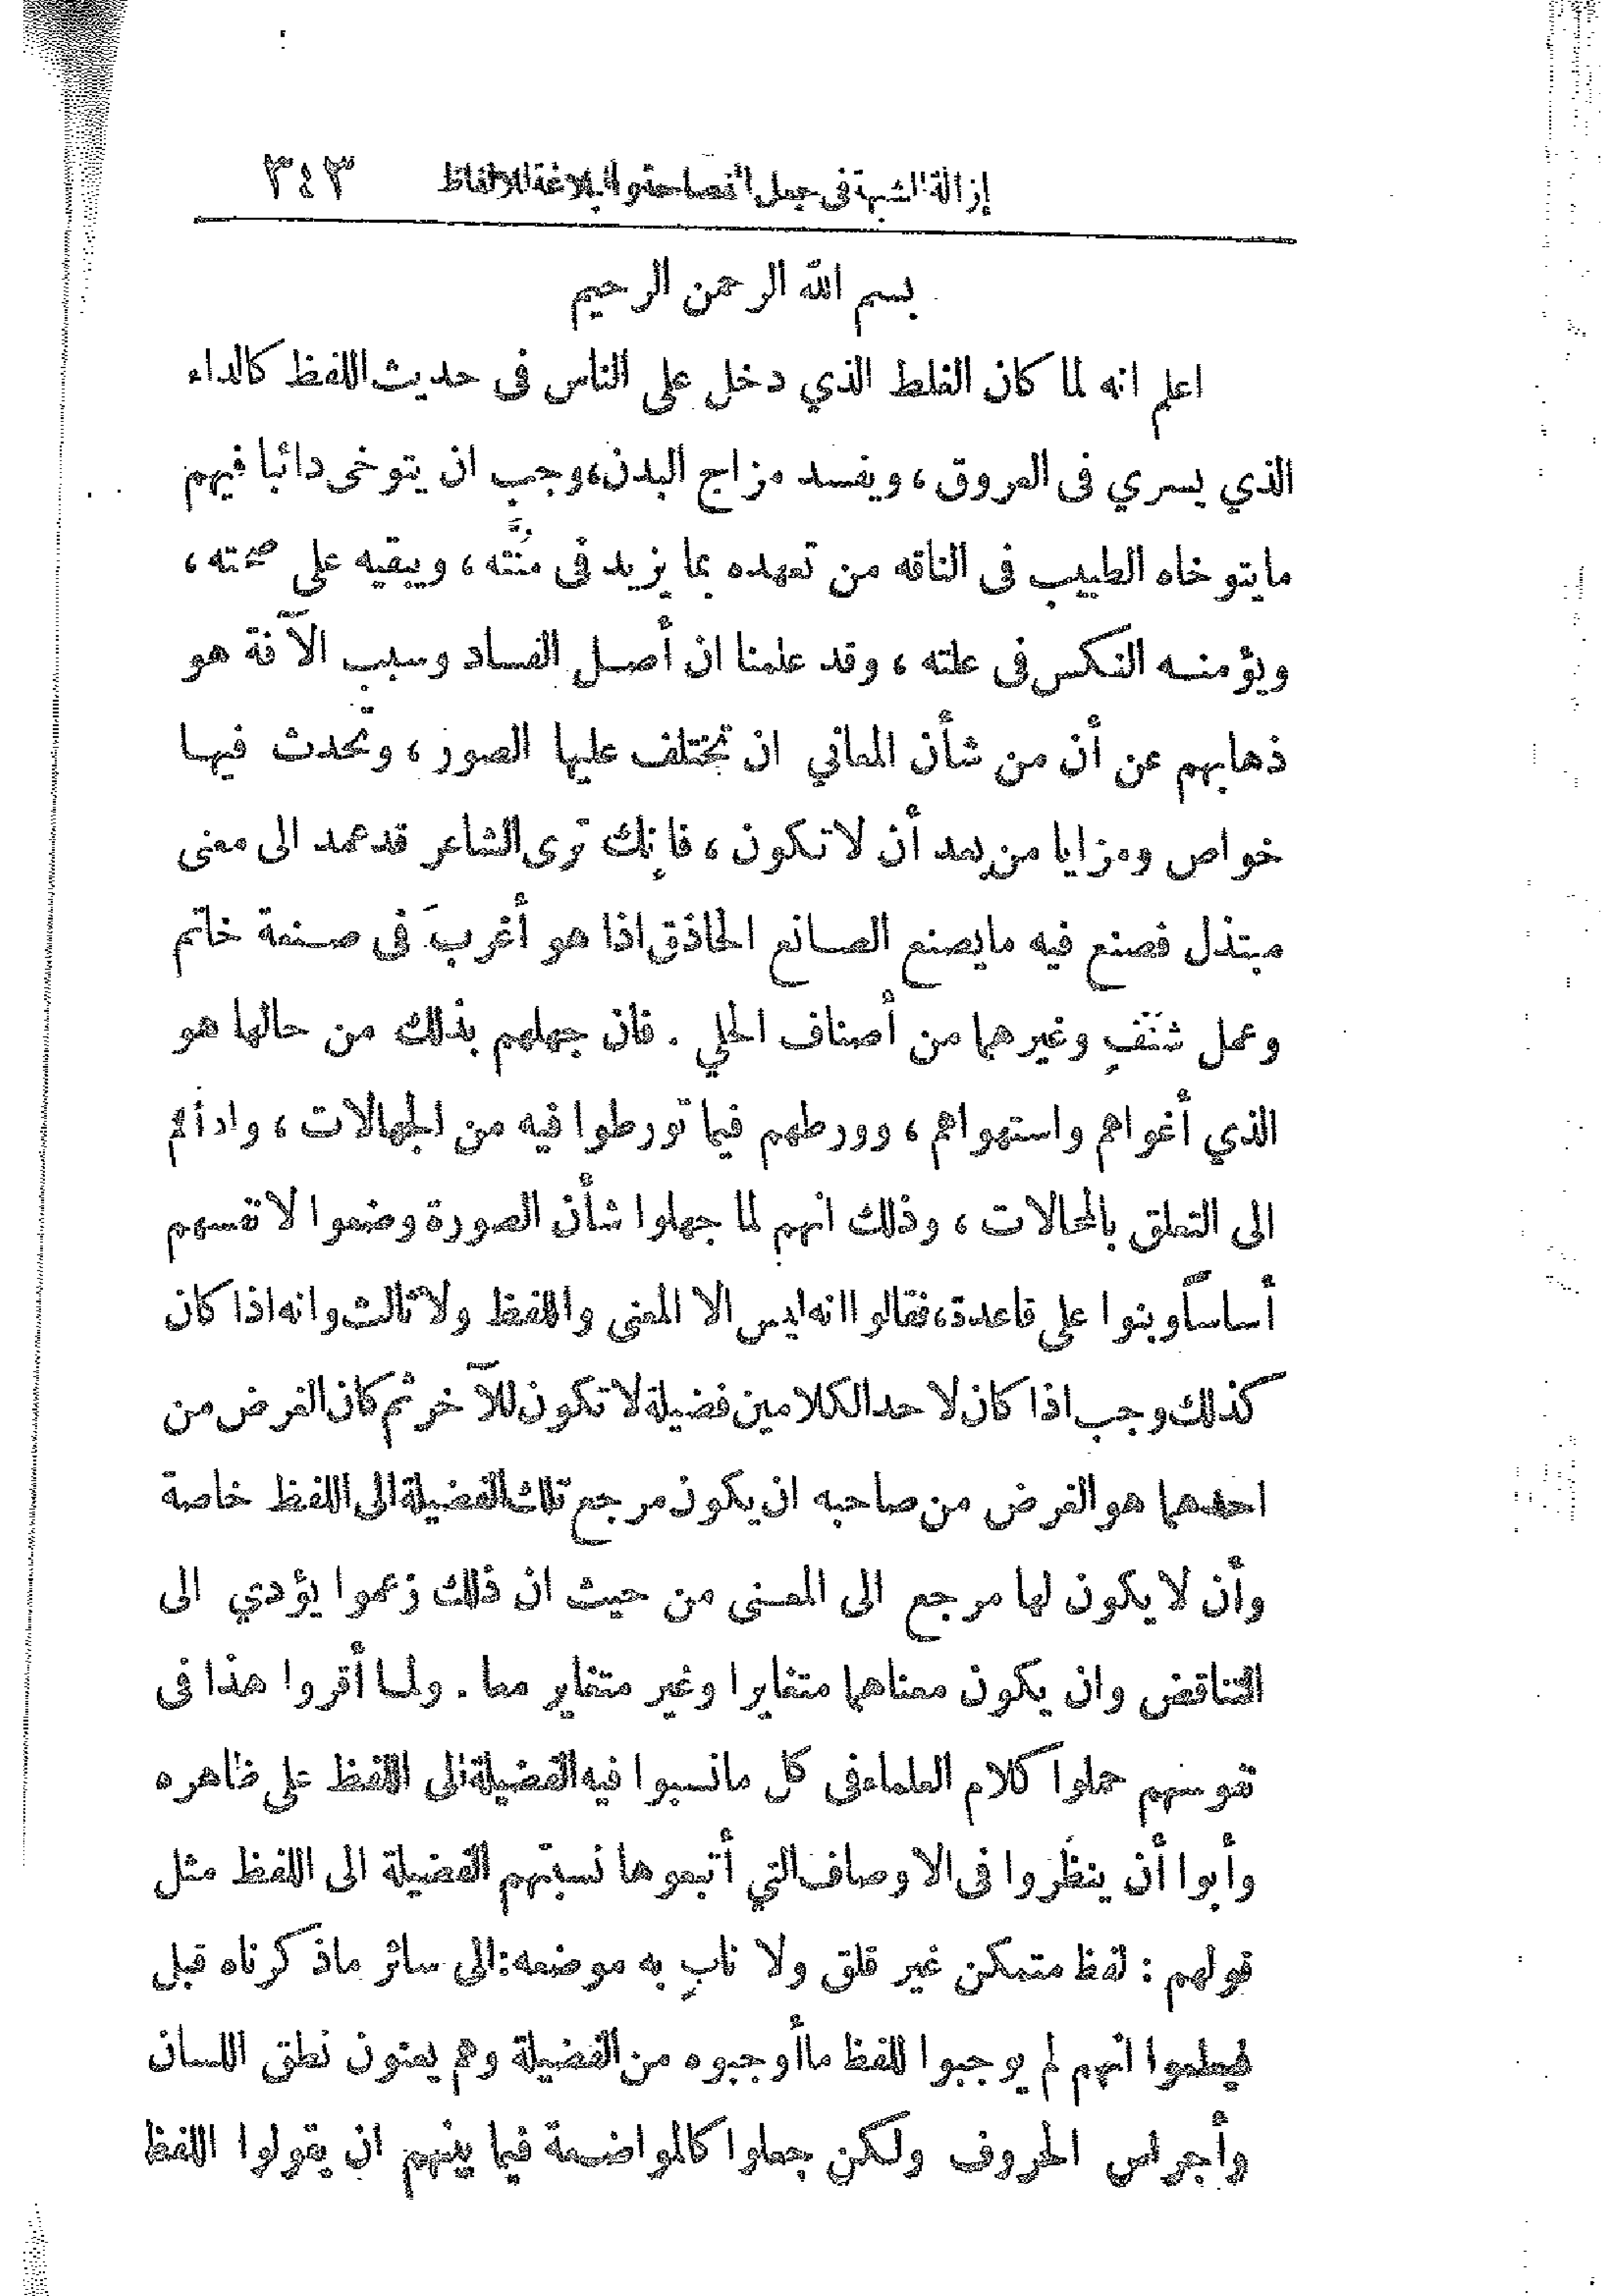 إزالة الشبهة فى جعل الفصاحة والبلاغة للالفاظ ٣٤٣
بسم الله الرحمن الرحيم
اعلم انه لما كان الغلط الذي دخل على الناس فى حديث اللفظ كالداء
الذي يسري فى العروق، ويفسد مزاج البدن، وجب ان يتوخى دائبا فيهم
مايتوخاه الطبيب فى الناقه من تعهده بما يزيد فى مُنَّته، ويبقيه على صحته،
ويؤمنه النكس فى علته، وقد علمنا ان أصل الفساد وسبب الآفة هو
ذهابهم عن أن من شأن المعاني ان تختلف عليها الصور، وتحدث فيها
خواص ومزايا من بعد أن لا تكون، فإنك ترى الشاعر قد عمد الى معنى
مبتذل فصنع فيه مايصنع الصانع الحاذق اذا هو أغربَ فى صنعة خاتم
وعمل شَنْفٍ وغيرهما من أصناف الحلي . فان جهلهم بذلك من حالها هو
الذي أغواهم واستهواهم، وورطهم فيما تورطوا فيه من الجهالات، واداهم
الى التعلق بالمحالات، وذلك انهم لما جهلوا شأن الصورة وضعوا لانفسهم
أساساً وبنوا على قاعدة، فقالوا انه ليس الا المعنى واللفظ ولا ثالث وانه اذا كان
كذلك وجب اذا كان لاحد الكلامين فضيلة لا تكون للآخر ثم كان الغرض من
احدهما هو الغرض من صاحبه ان يكون مرجع تلك الفضيلة الى اللفظ خاصة
وأن لا يكون لها مرجع الى المعنى من حيث ان ذلك زعموا يؤدي الى
التناقض وان يكون معناهما متغايرا وغير متغاير معا . ولما أقروا هذا فى
نفوسهم حملوا كلام العلماء فى كل مانسبوا فيه الفضيلة الى اللفظ على ظاهره
وأبوا أن ينظروا فى الاوصاف التي أتبعوها نسبتهم الفضيلة الى اللفظ مثل
قولهم : لفظ متمكن غير قلق ولا نابٍ به موضعه : الى سائر ماذكرناه قبل
فيعلموا انهم لم يوجبوا للفظ ماأوجبوه من الفضيلة وهم يعنون نطق اللسان
وأجراس الحروف ولكن جعلوا كالمواضعة فيما بينهم ان يقولوا اللفظ